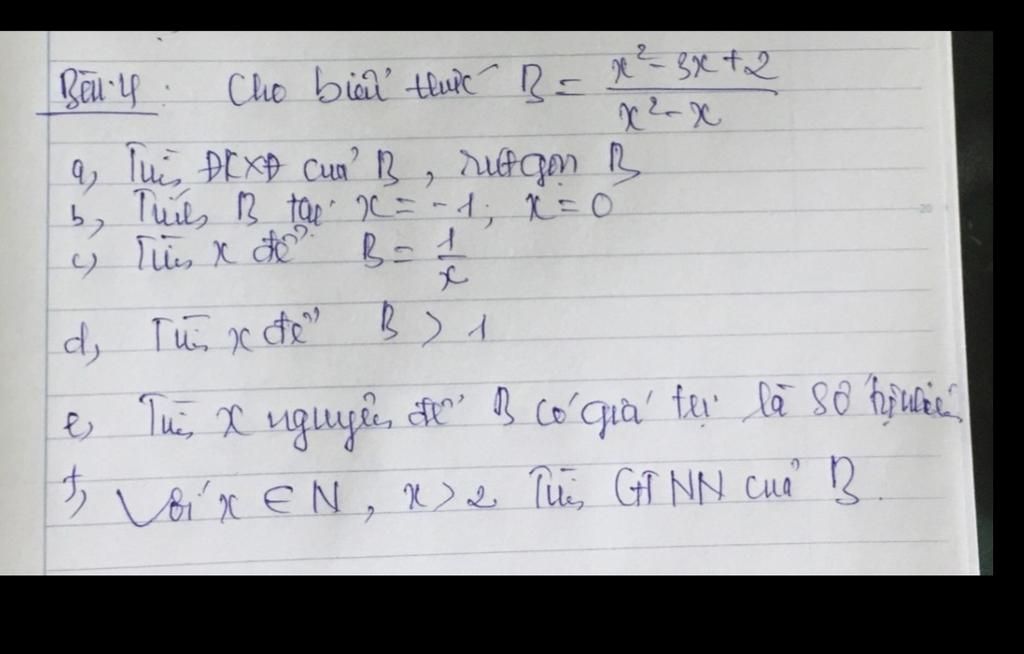 Bài 4: Cho biểu thức B = x² - 3x + 2 / x² - x
a, Tìm ĐKXĐ của B, rút gọn B
b, Tính B tại x = -1; x = 0
c, Tìm x để B = 1/x
d, Tìm x để B > 1
e, Tìm x nguyên để B có giá trị là số tự nhiên
f, Với x ∈ N, x > 2 Tìm GTNN của B.